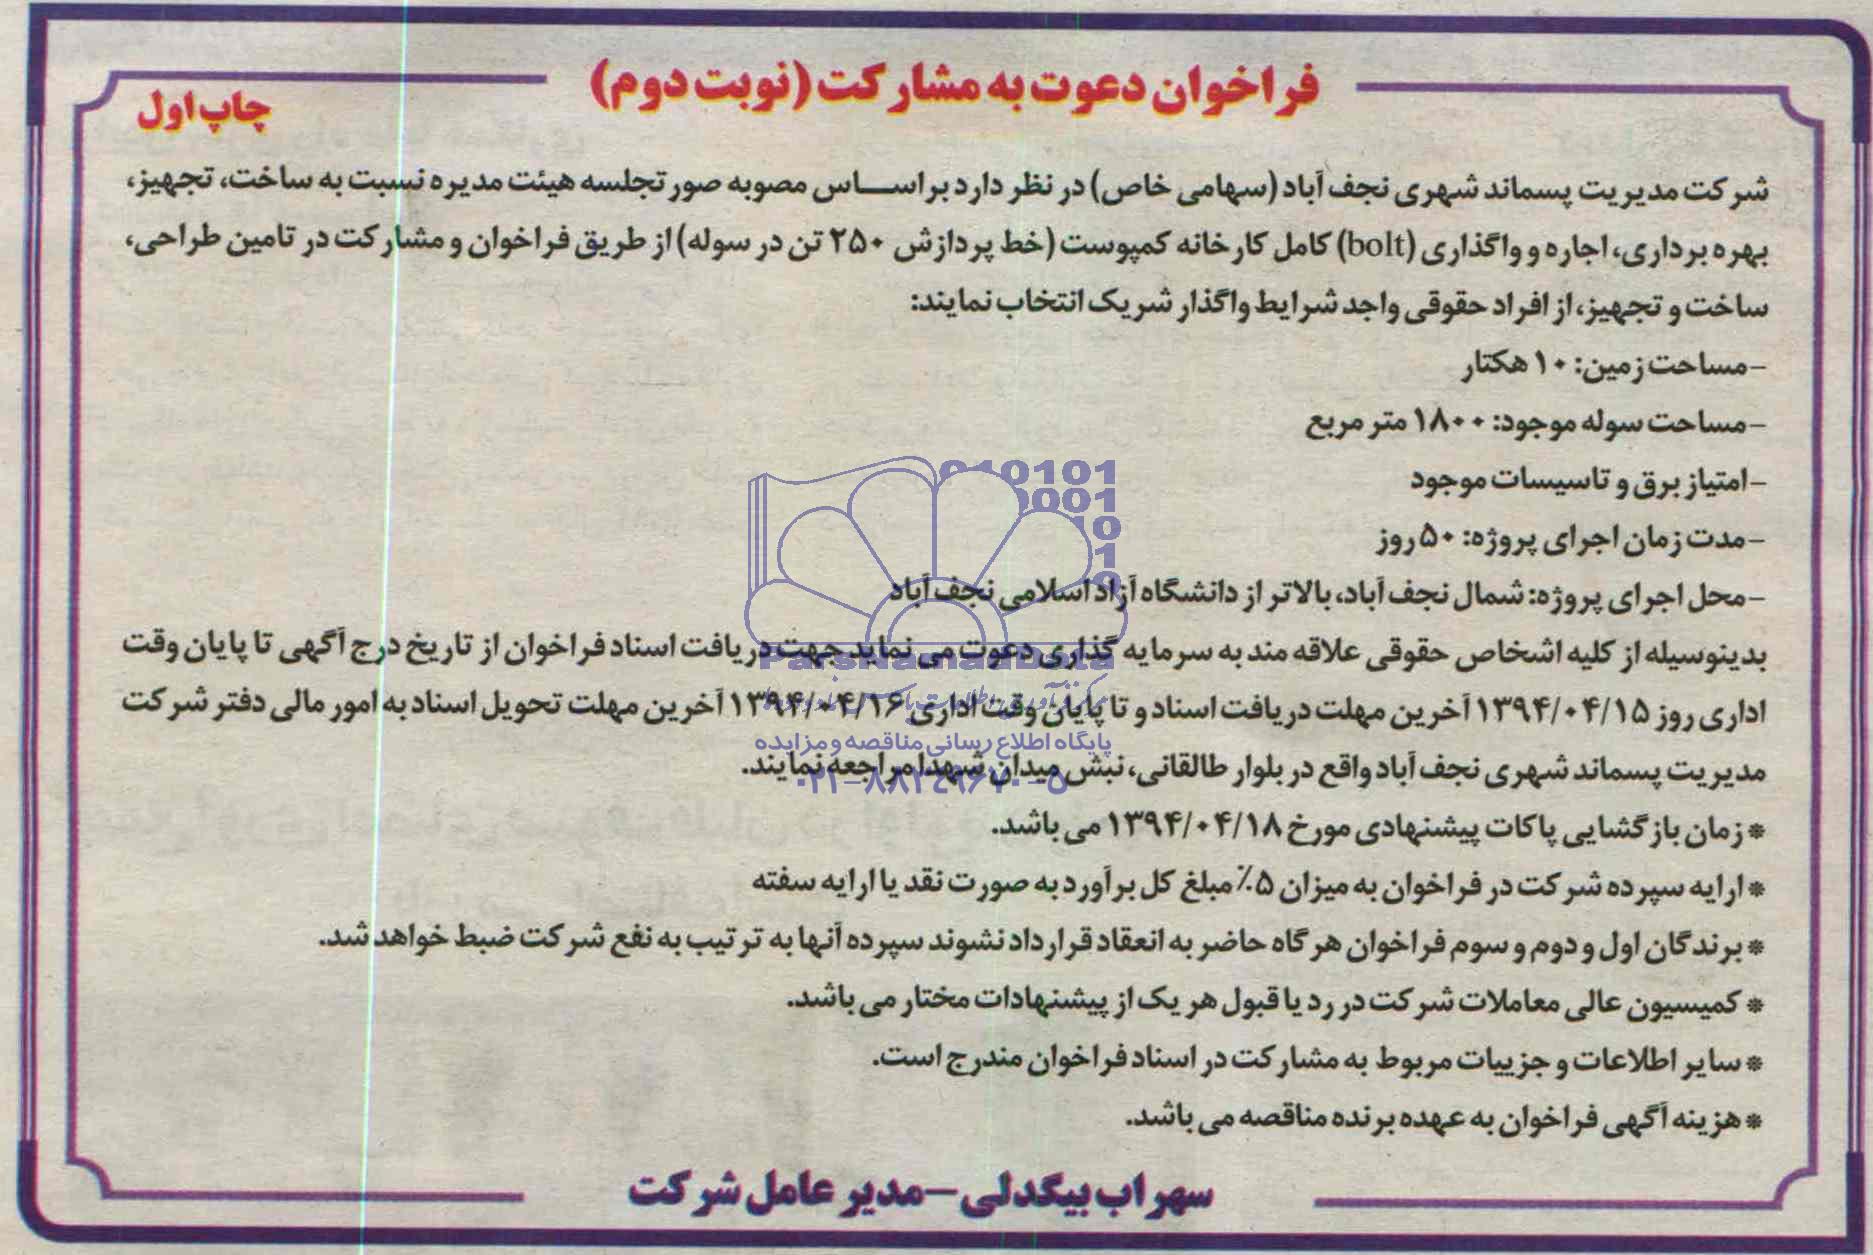 فراخوان دعوت به مشارکت (نوبت دوم)
چاپ اول
شرکت مدیریت پسماند شهری نجف آباد (سهامی خاص) در نظر دارد براساس مصوبه صورتجلسه هیئت مدیره نسبت به ساخت، تجهیز،
بهره برداری، اجاره و واگذاری (bolt) کامل کارخانه کمپوست (خط پردازش ۲۵۰ تن در سوله) از طریق فراخوان و مشارکت در تامین طراحی،
ساخت و تجهیز، از افراد حقوقی واجد شرایط واگذار شریک انتخاب نمایند:
-مساحت زمین: ۱۰ هکتار
-مساحت سوله موجود: ۱۸۰۰ متر مربع
-امتیاز برق و تاسیسات موجود
-مدت زمان اجرای پروژه: ۵۰ روز
-محل اجرای پروژه: شمال نجف آباد، بالاتر از دانشگاه آزاد اسلامی نجف آباد
بدینوسیله از کلیه اشخاص حقوقی علاقه مند به سرمایه گذاری دعوت می نماید جهت دریافت اسناد فراخوان از تاریخ درج آگهی تا پایان وقت
اداری روز ۱۳۹۴/۰۴/۱۵ آخرین مهلت دریافت اسناد و تا پایان وقت اداری ۱۳۹۴/۰۴/۱۶ آخرین مهلت تحویل اسناد به امور مالی دفتر شرکت
مدیریت پسماند شهری نجف آباد واقع در بلوار طالقانی، نبش میدان شهدا مراجعه نمایند.
* زمان بازگشایی پاکات پیشنهادی مورخ ۱۳۹۴/۰۴/۱۸ می باشد.
* ارایه سپرده شرکت در فراخوان به میزان ۵٪ مبلغ کل برآورد به صورت نقد یا ارایه سفته
* برندگان اول و دوم و سوم فراخوان هرگاه حاضر به انعقاد قرارداد نشوند سپرده آنها به ترتیب به نفع شرکت ضبط خواهد شد.
* کمیسیون عالی معاملات شرکت در رد یا قبول هر یک از پیشنهادات مختار می باشد.
* سایر اطلاعات و جزییات مربوط به مشارکت در اسناد فراخوان مندرج است.
* هزینه آگهی فراخوان به عهده برنده مناقصه می باشد.
سهراب بیگدلی – مدیر عامل شرکت
010101
0001
10
1
ParsNamadData
پایگاه اطلاع رسانی مناقصه و مزایده
۰۲۱-۸۸۳۴۹۶۷۰-۵